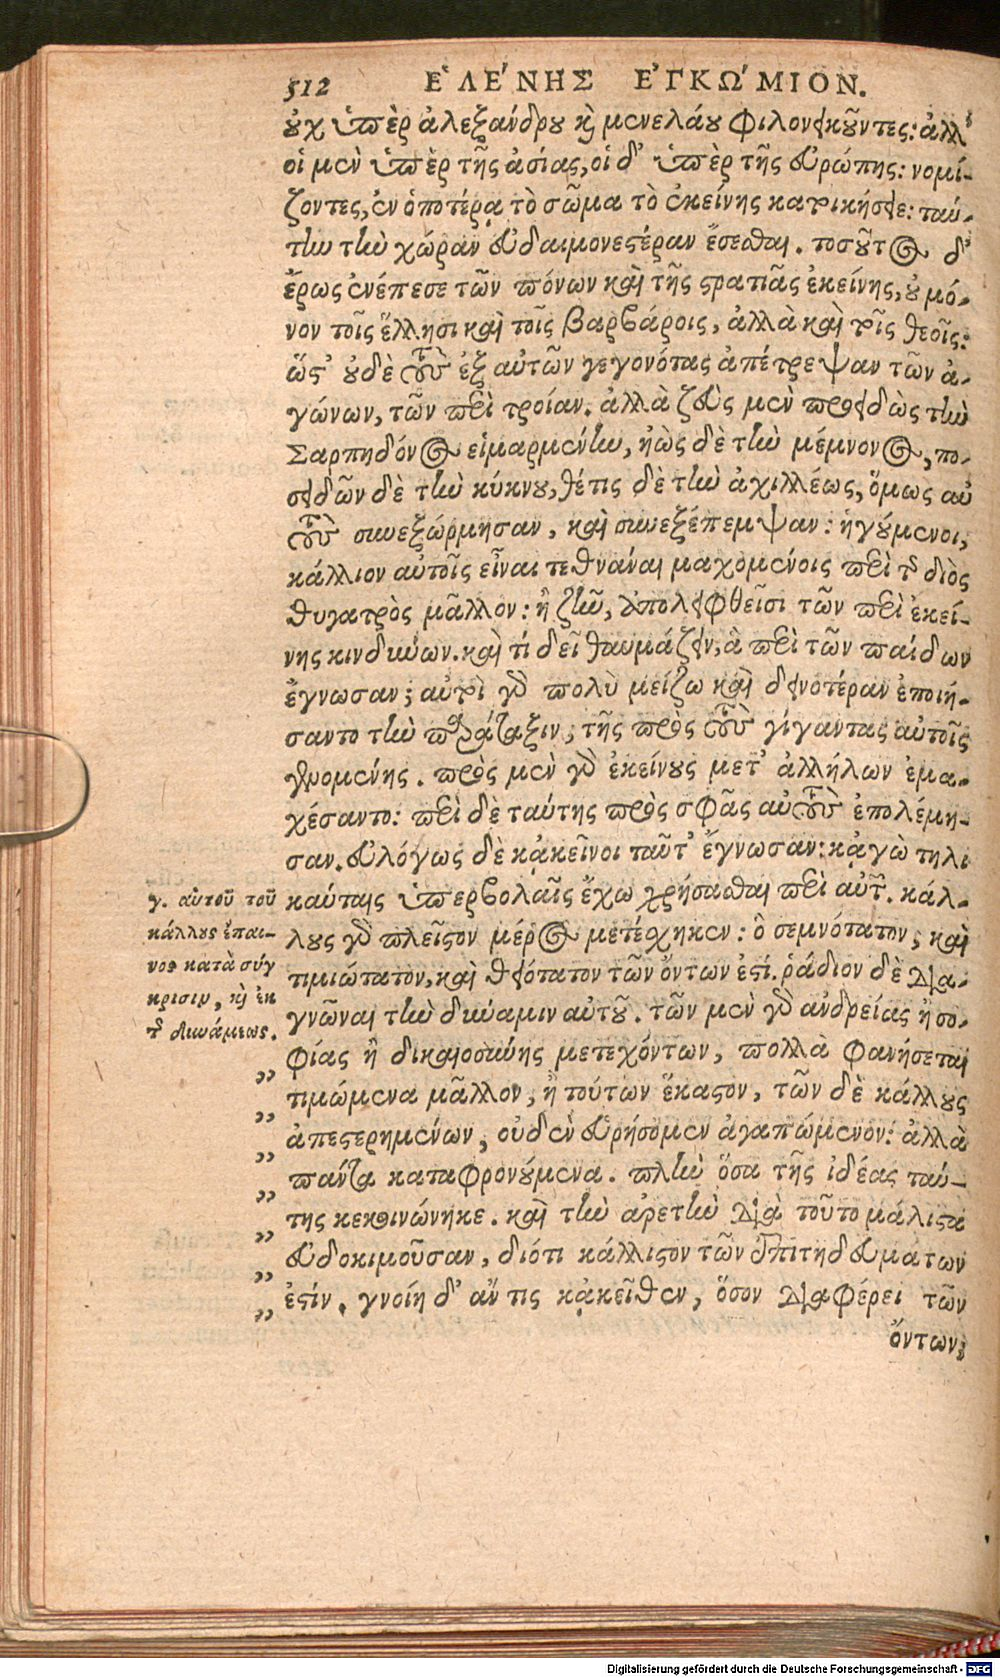 512 ἙΛΈΝΗΣ ἘΓΚΏΜΙΟΝ.
οὐχ ὑπὲρ ἀλεξάνδρου καὶ μενελάου φιλονεικοῦντες: ἀλλ'
οἱ μὲν ὑπὲρ τῆς ἀσίας, οἱ δ' ὑπὲρ τῆς εὐρώπης: νομί-
ζοντες, ἐν ὁποτέρᾳ τὸ σῶμα τὸ ἐκείνης κατοικήσειε: ταύ-
την τὴν χώραν εὐδαιμονεστέραν ἔσεσθαι. τοσοῦτος δ'
ἔρως ἐνέπεσε τῶν πόνων καὶ τῆς στρατιᾶς ἐκείνης, οὐ μό-
νον τοῖς ἕλλησι καὶ τοῖς βαρβάροις, ἀλλὰ καὶ τοῖς θεοῖς:
ὥστ' οὐδὲ τοὺς ἐξ αὐτῶν γεγονότας ἀπέτρεψαν τῶν ἀ-
γώνων, τῶν περὶ τροίαν. ἀλλὰ ζεὺς μὲν προειδὼς τὴν
Σαρπηδόνος εἱμαρμένην, ἠὼς δὲ τὴν μέμνονος, πο-
σειδῶν δὲ τὴν κύκνου, θέτις δὲ τὴν ἀχιλλέως, ὅμως αὐ
τοὺς συνεξώρμησαν, καὶ συνεξέπεμψαν: ἡγούμενοι,
κάλλιον αὐτοῖς εἶναι τεθνάναι μαχομένοις περὶ τῆς διὸς
θυγατρὸς μᾶλλον: ἢ ζῆν, ἀπολειφθεῖσι τῶν περὶ ἐκεί-
νης κινδύνων. καὶ τί δεῖ θαυμάζειν, ἃ περὶ τῶν παίδων
ἔγνωσαν; αὐτοὶ γὰρ πολὺ μείζω καὶ δεινοτέραν ἐποιή-
σαντο τὴν παράταξιν, τῆς πρὸς τοὺς γίγαντας αὐτοῖς
γενομένης. πρὸς μὲν γὰρ ἐκείνους μετ' ἀλλήλων ἐμα-
χέσαντο: περὶ δὲ ταύτης πρὸς σφᾶς αὐτοὺς ἐπολέμη-
σαν. εὐλόγως δὲ κᾀκεῖνοι ταῦτ' ἔγνωσαν: κᾀγὼ τηλι
καύταις ὑπερβολαῖς ἔχω χρήσασθαι περὶ αὐτῆς. κάλ-
λους γὰρ πλεῖστον μέρος μετέσχηκεν: ὃ σεμνότατον, καὶ
τιμιώτατον, καὶ θειότατον τῶν ὄντων ἐστί. ῥᾴδιον δὲ δια-
γνῶναι τὴν δύναμιν αὐτοῦ. τῶν μὲν γὰρ ἀνδρείας ἢ σο-
φίας ἢ δικαιοσύνης μετεχόντων, πολλὰ φανήσεται
τιμώμενα μᾶλλον, ἢ τούτων ἕκαστον, τῶν δὲ κάλλους
ἀπεστερημένων, οὐδὲν εὑρήσομεν ἀγαπώμενον: ἀλλὰ
πάντα καταφρονούμενα. πλὴν ὅσα τῆς ἰδέας ταύ-
της κεκοινώνηκε. καὶ τὴν ἀρετὴν διὰ τοῦτο μάλιστα
εὐδοκιμοῦσαν, διότι κάλλιστον τῶν ἐπιτηδευμάτων
ἐστίν. γνοίη δ' ἄν τις κᾀκεῖθεν, ὅσον διαφέρει τῶν
ὄντων:
γ. αὐτοῦ τοῦ
κάλλους ἔπαι-
νος κατὰ σύγ
κρισιν, καὶ ἐκ
τῆς δυνάμεως.
„
„
„
„
„
„
„
Digitalisierung gefördert durch die Deutsche Forschungsgemeinschaft - DFG